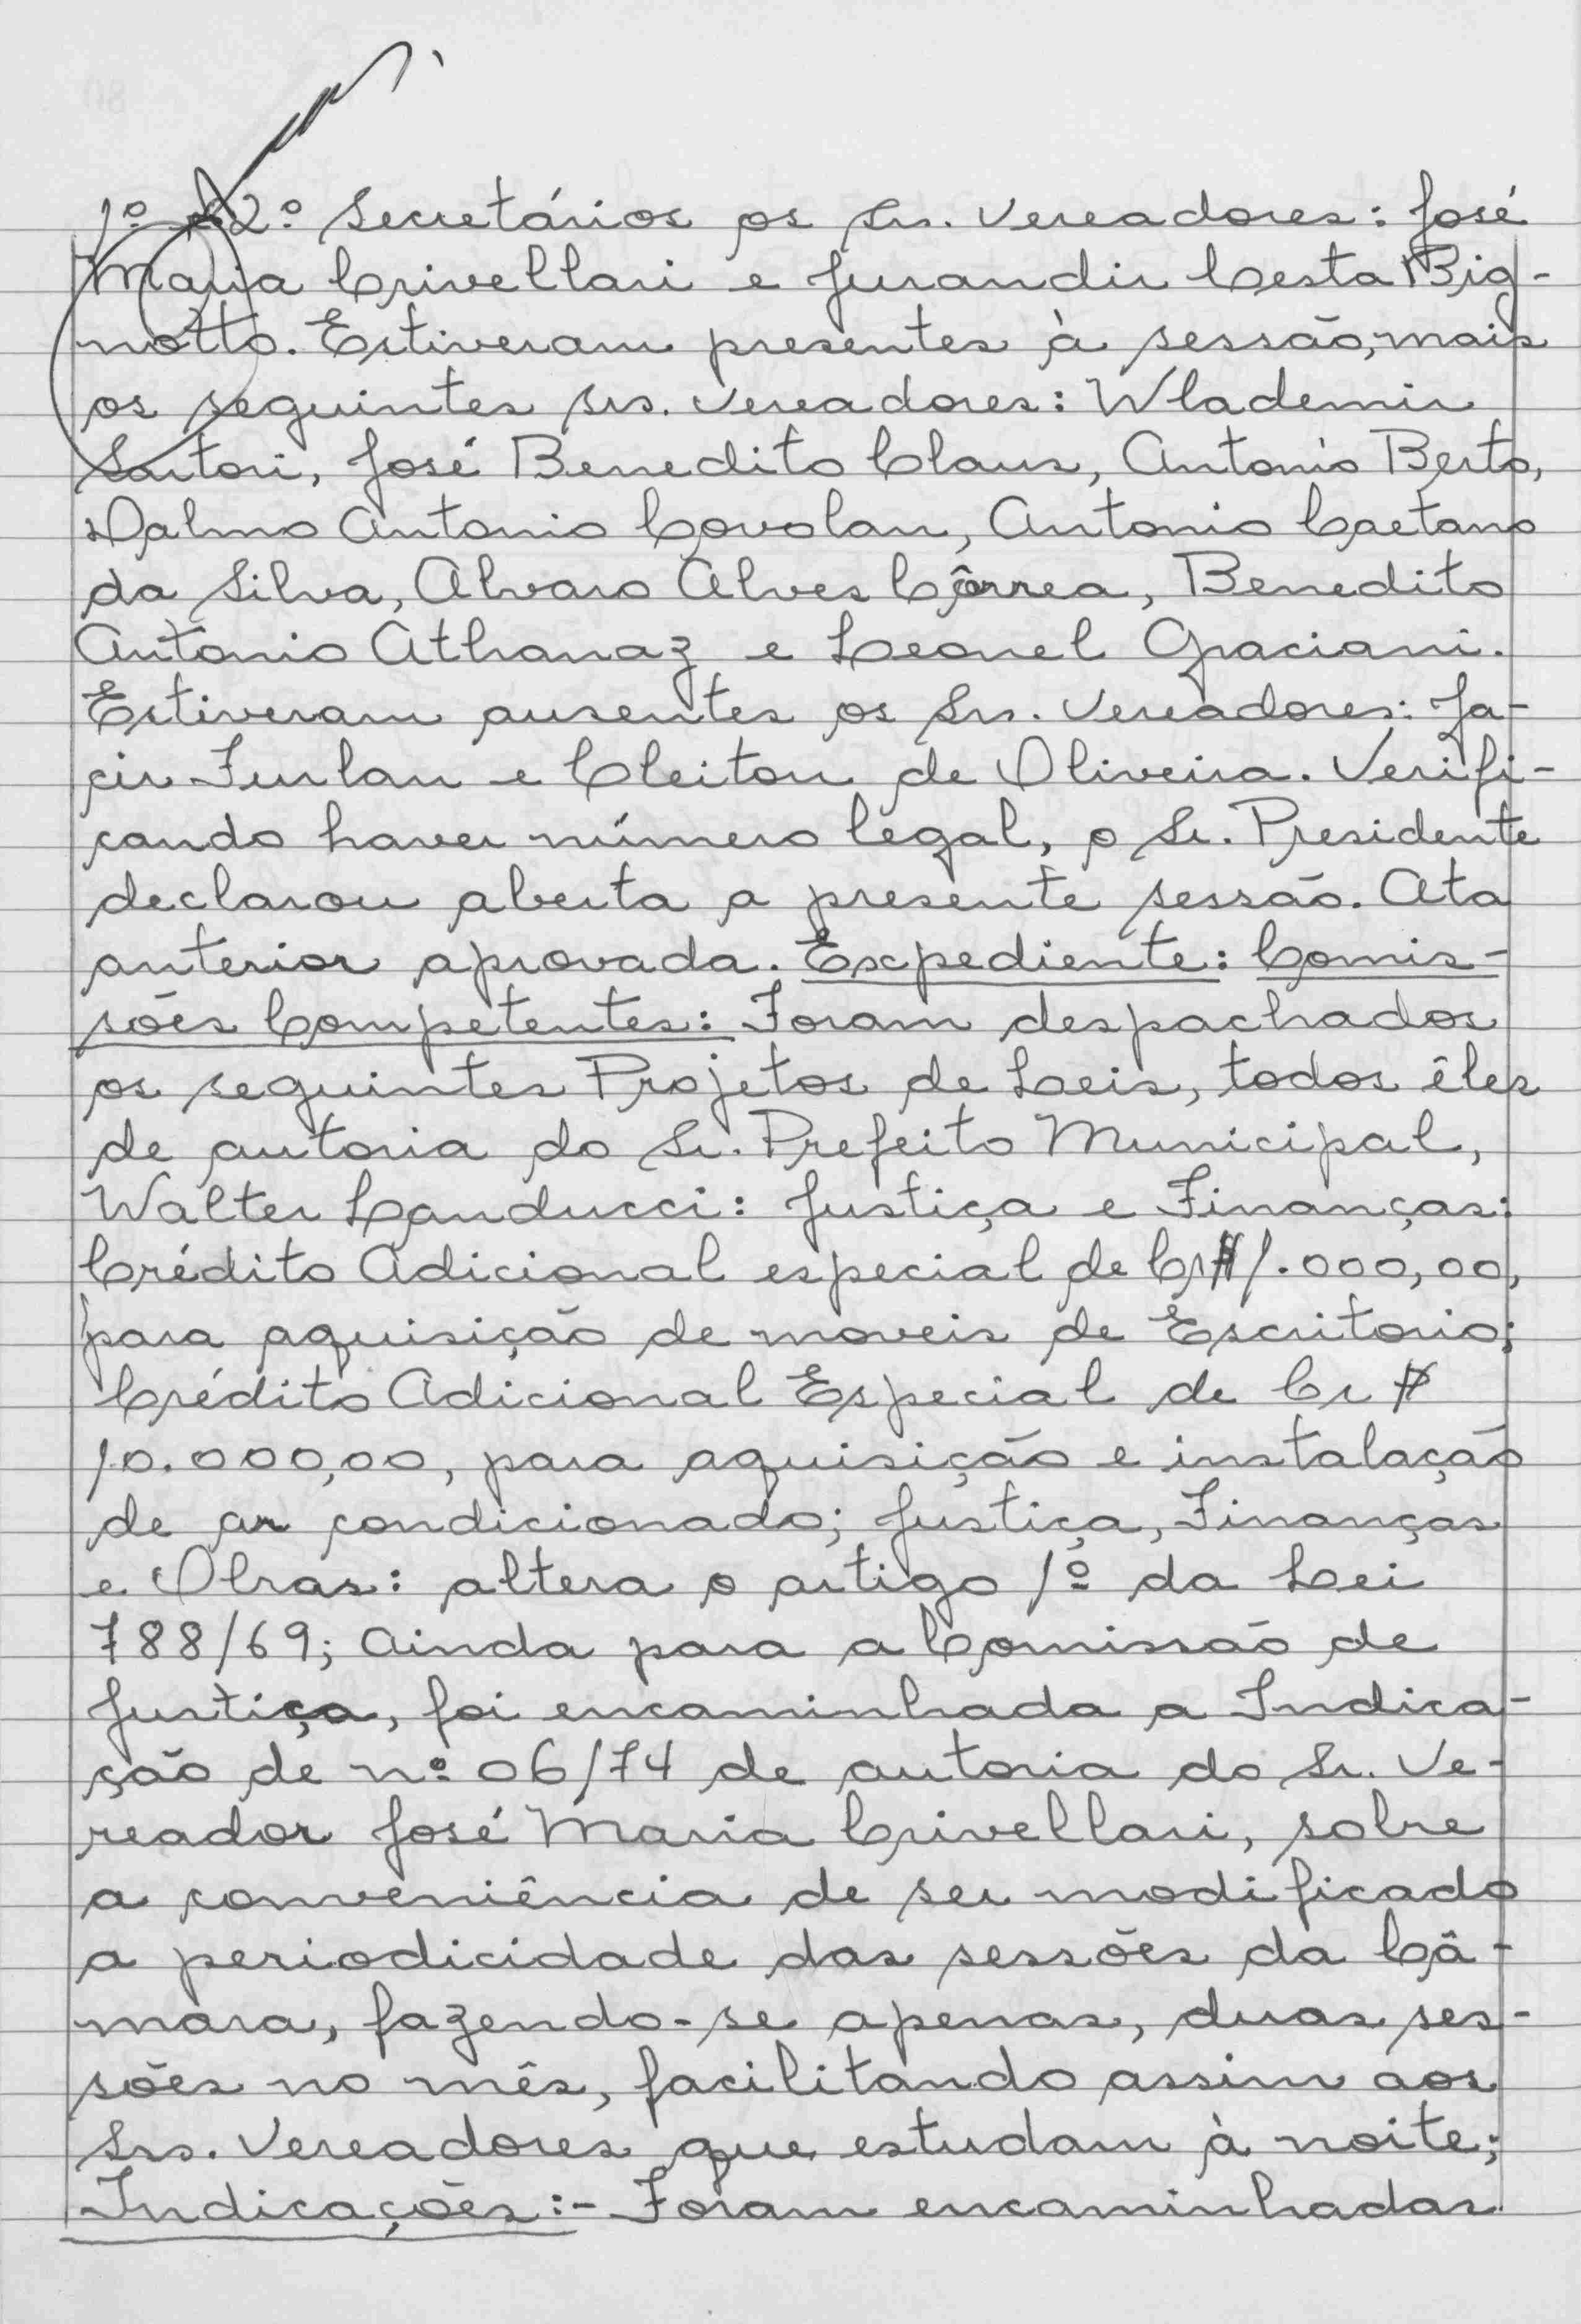 1º e 2º Secretários os Srs. Vereadores: José
Maria Crivellari e Jurandir Cesta Big-
notto. Estiveram presentes à sessão, mais
os seguintes srs. Vereadores: Wlademir
Sartori, José Benedito Claus, Antonio Berto,
Dalmo Antonio Covolan, Antonio Caetano
da Silva, Alvaro Alves Côrrea, Benedito
Antonio Athanaz e Leonel Graciani.
Estiveram ausentes os Srs. Vereadores: Ja-
cir Furlan e Cleiton de Oliveira. Verifi-
cando haver número legal, o Sr. Presidente
declarou aberta a presente sessão. Ata
anterior aprovada. Expediente: Comis-
sões Competentes: Foram despachados
os seguintes Projetos de Leis, todos êles
de autoria do Sr. Prefeito Municipal,
Walter Landucci: Justiça e Finanças:
Crédito Adicional especial de Cr$1.000,00,
para aquisição de moveis de Escritorio;
Crédito Adicional Especial de Cr $
10.000,00, para aquisição e instalação
de ar condicionado; Justiça, Finanças
e Obras: altera o artigo 1º da Lei
788/69; Ainda para a Comissão de
Justiça, foi encaminhada a Indica-
ção de nº 06/74 de autoria do Sr. Ve-
reador José Maria Crivellari, sobre
a conveniência de ser modificado
a periodicidade das sessões da Câ-
mara, fazendo-se apenas, duas ses-
sões no mês, facilitando assim aos
Srs. Vereadores que estudam à noite;
Indicações:- Foram encaminhadas